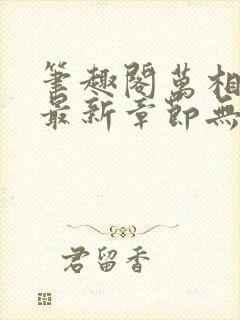 筆趣閣萬相
最新章節無
君留香